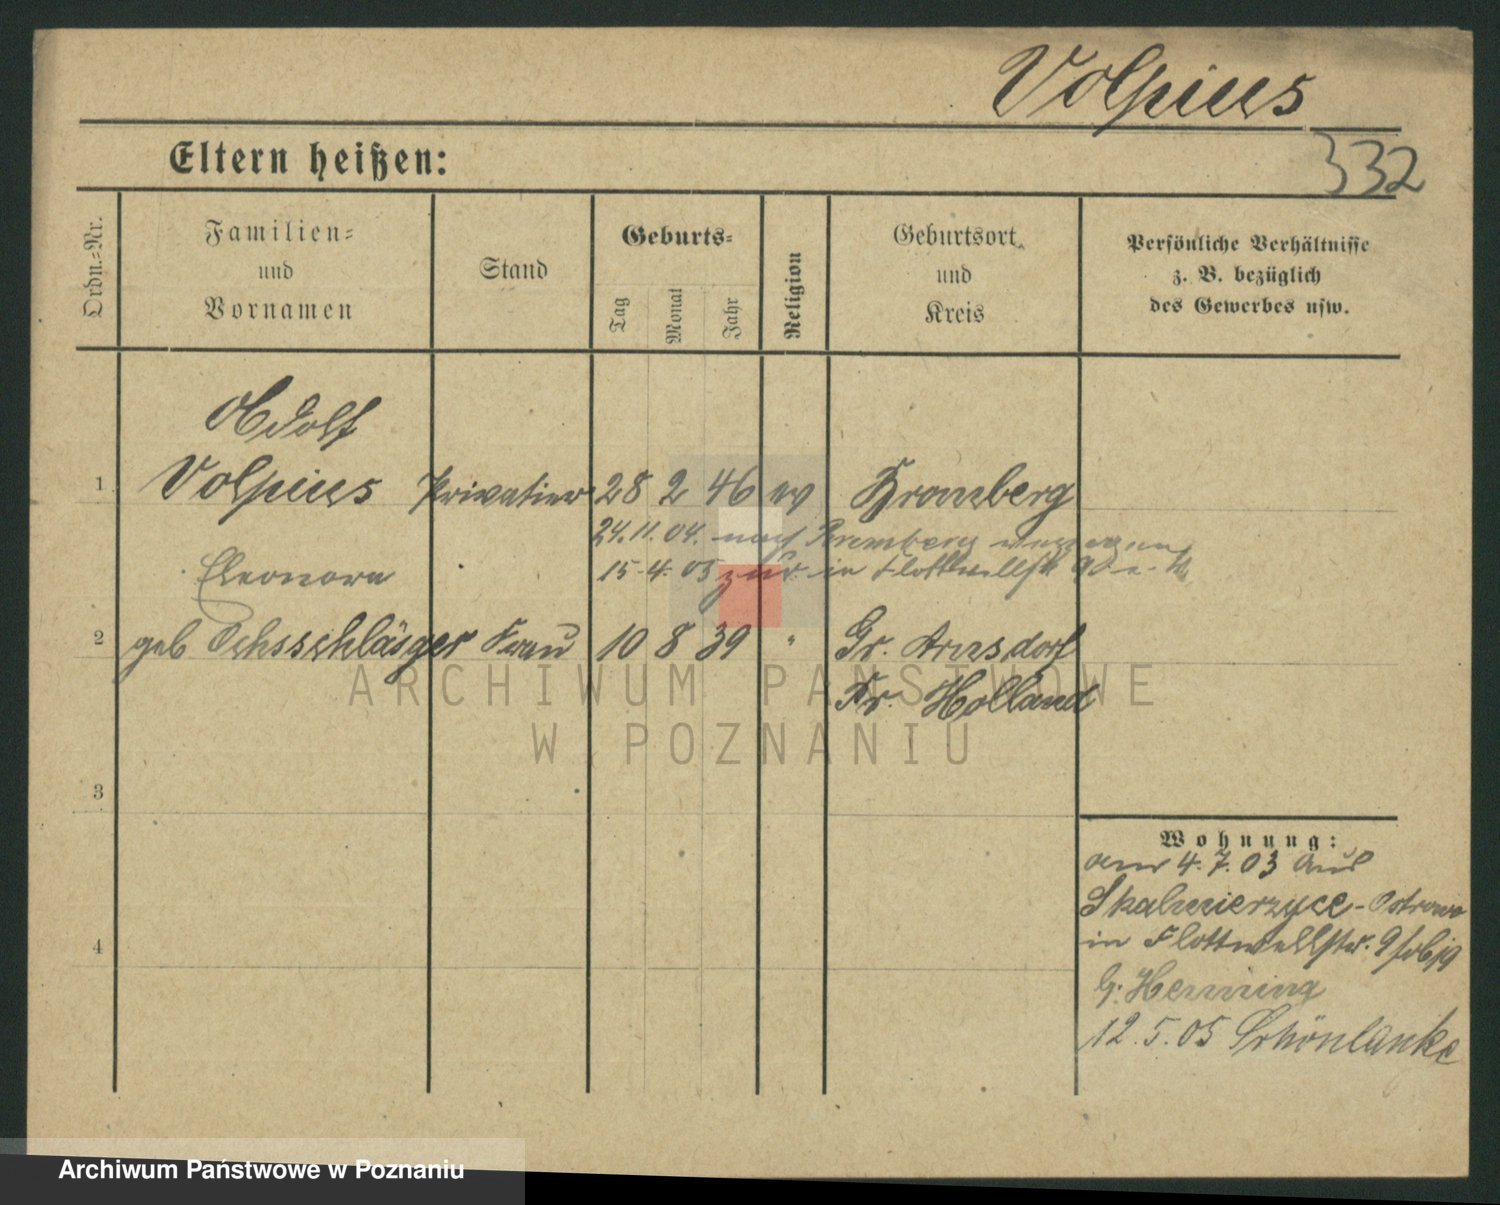 Volpius
332
Eltern heißen:
Ordn.-Nr.
Familien-
und
Vornamen
Stand
Geburts-
Tag
Monat
Jahr
Religion
Geburtsort
und
Kreis
Persönliche Verhältnisse
z. B. bezüglich
des Gewerbes usw.
Adolf
1 Volpius Privatier 28 2 46 ev Bromberg
24.11.04. nach Bromberg verzogen
15.4.05 zur. in Flottwellstr 9
Eleonora
2 geb Ochsschläger Frau 10 8 39 " Gr. Arnsdorf
Kr. Holland
3
Wohnung:
am 4.7.03 aus
Skalmierzyce - Ostrowo
in Flottwellstr. 9
4
G. Henning
12.5.05 Schönlanke
ARCHIWUM PAŃSTWOWE
W POZNANIU
Archiwum Państwowe w Poznaniu